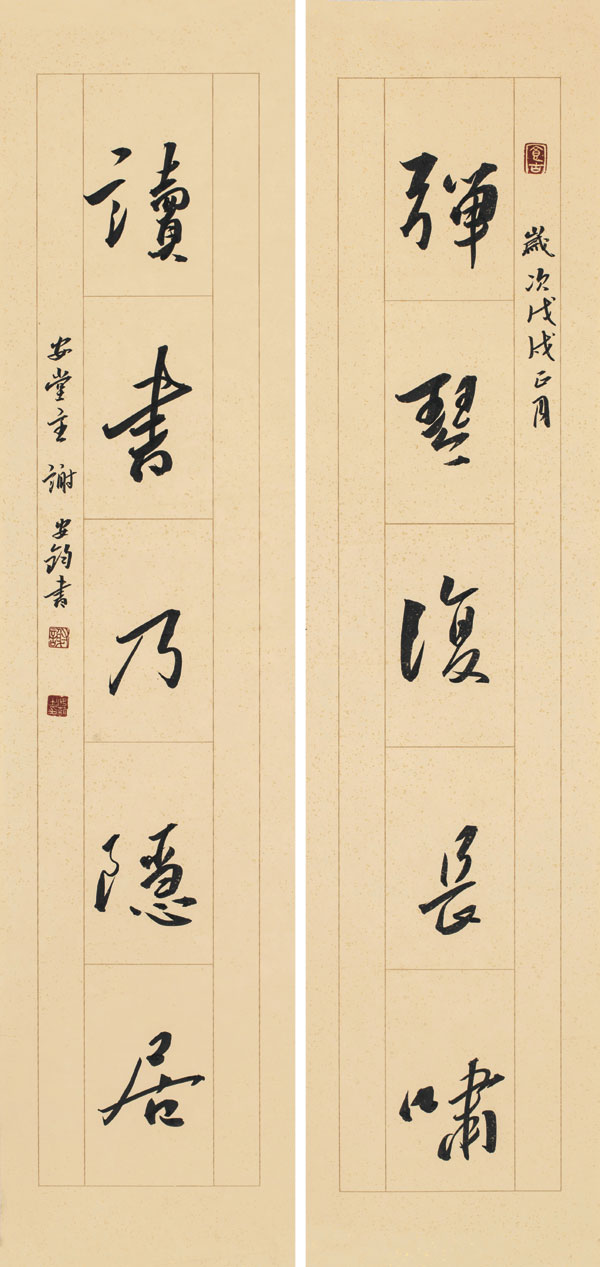 歲次戊戌正月
彈琴復長嘯
讀書乃隱居
安堂主 謝安鈞書